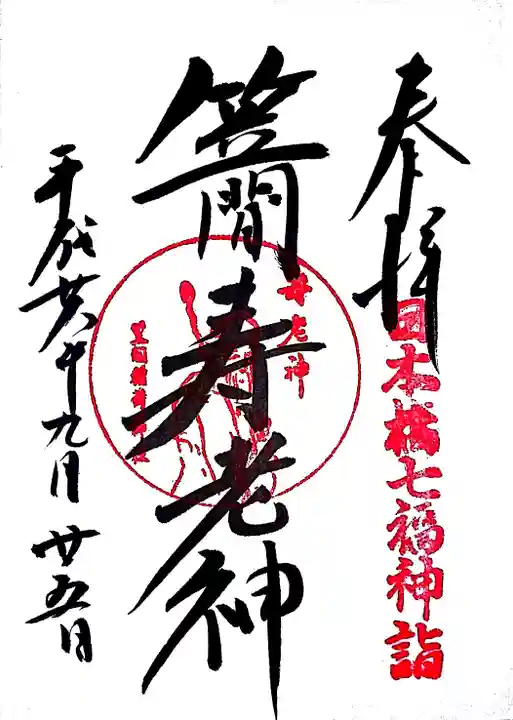 奉拝
日本橋七福神詣
笠間寿老神
寿老神
笠間稲荷神社
平成廿六年九月廿五日